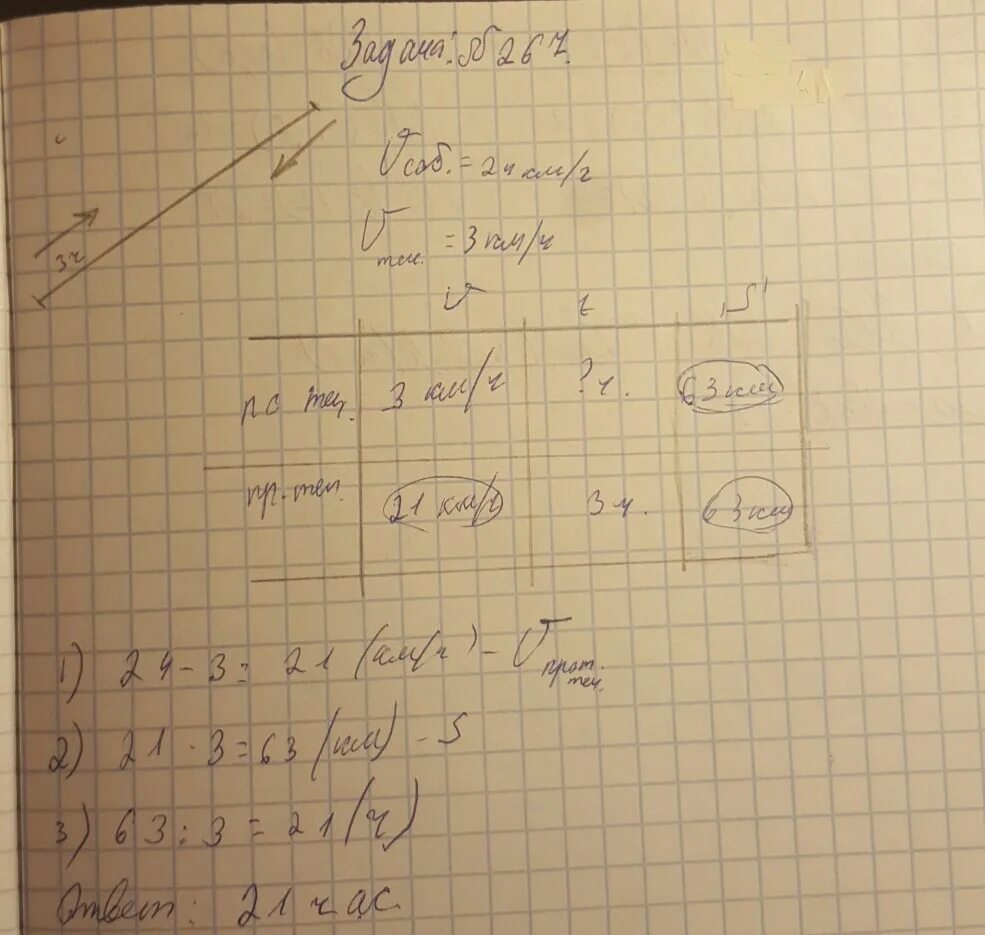 Задача: № 267.
Vсоб. = 24 км/ч
Vтеч. = 3 км/ч
3ч
V t S
по теч. 3 км/ч ? ч. 63 км
пр. теч. 21 км/ч 3 ч. 63 км
1) 24 - 3 = 21 (км/ч) - V прот. теч.
2) 21 · 3 = 63 (км) - S
3) 63 : 3 = 21 (ч)
Ответ: 21 час